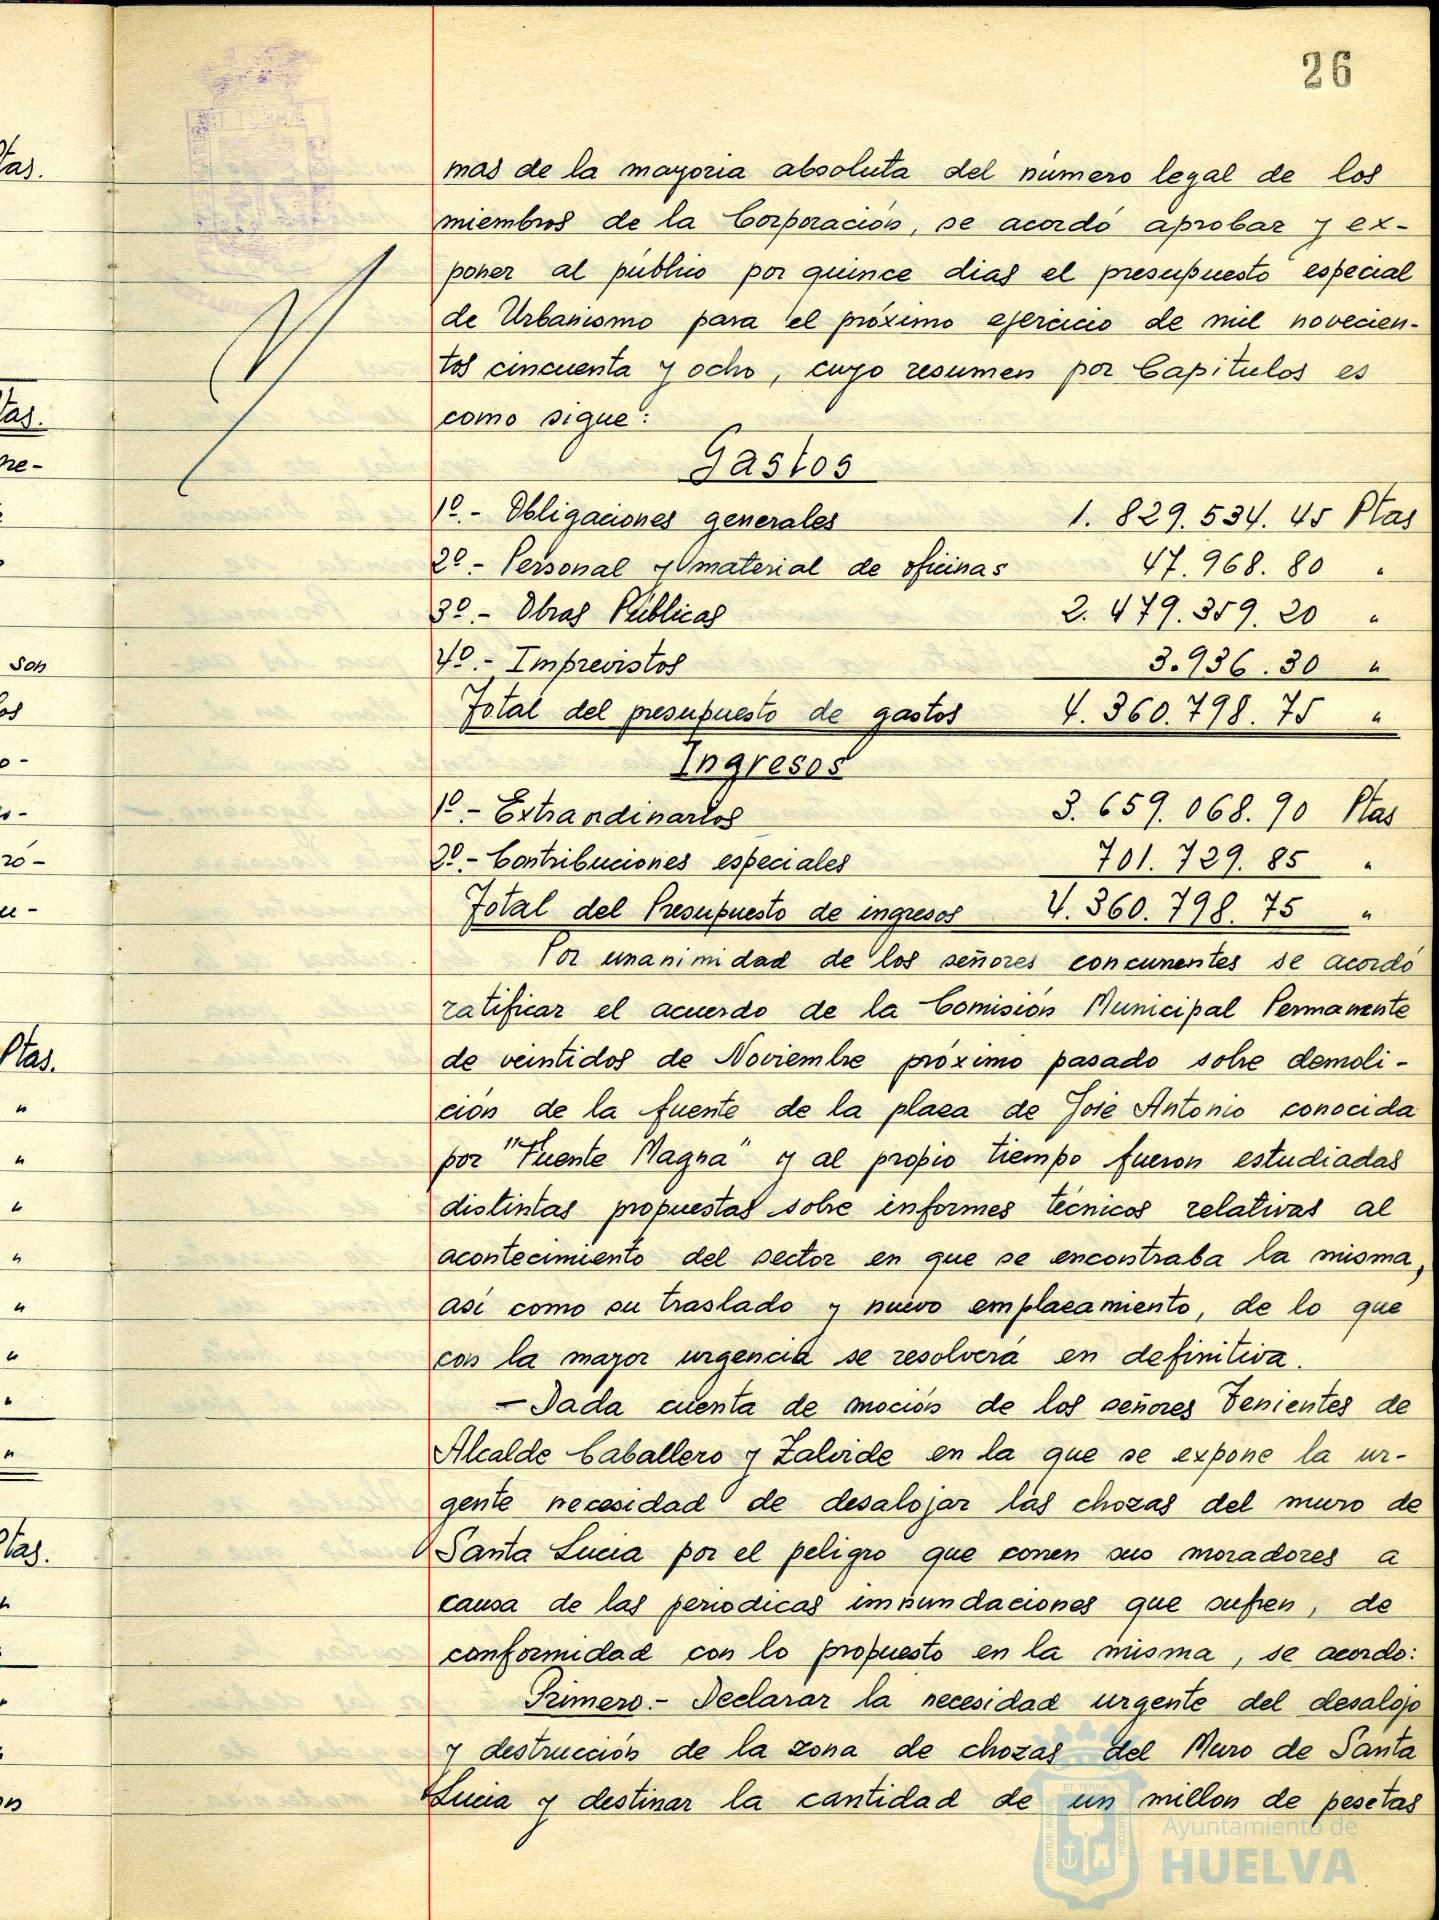 26
mas de la mayoria absoluta del número legal de los
miembros de la Corporación, se acordó aprobar y ex-
poner al público por quince dias el presupuesto especial
de Urbanismo para el próximo ejercicio de mil novecien-
tos cincuenta y ocho, cuyo resumen por Capítulos es
como sigue:
Gastos
1º.- Obligaciones generales 1.829.534.45 Ptas
2º.- Personal y material de oficinas 47.968.80 "
3º.- Obras Públicas 2.479.359.20 "
4º.- Imprevistos 3.936.30 "
Total del presupuesto de gastos 4.360.798.75 "
Ingresos
1º.- Extraordinarios 3.659.068.90 Ptas
2º.- Contribuciones especiales 701.729.85 "
Total del Presupuesto de ingresos 4.360.798.75 "
Por unanimidad de los señores concurrentes se acordó
ratificar el acuerdo de la Comisión Municipal Permanente
de veintidos de Noviembre próximo pasado sobre demoli-
ción de la fuente de la plaza de José Antonio conocida
por "Fuente Magna" y al propio tiempo fueron estudiadas
distintas propuestas sobre informes técnicos relativas al
acontecimiento del sector en que se encontraba la misma,
así como su traslado y nuevo emplazamiento, de lo que
con la mayor urgencia se resolverá en definitiva.
- Dada cuenta de moción de los señores Tenientes de
Alcalde Caballero y Zalvide en la que se expone la ur-
gente necesidad de desalojar las chozas del muro de
Santa Lucia por el peligro que corren sus moradores a
causa de las periodicas innundaciones que sufren, de
conformidad con lo propuesto en la misma, se acordo:
Primero.- Declarar la necesidad urgente del desalojo
y destrucción de la zona de chozas del Muro de Santa
Lucia y destinar la cantidad de un millon de pesetas
Ayuntamiento de
HUELVA